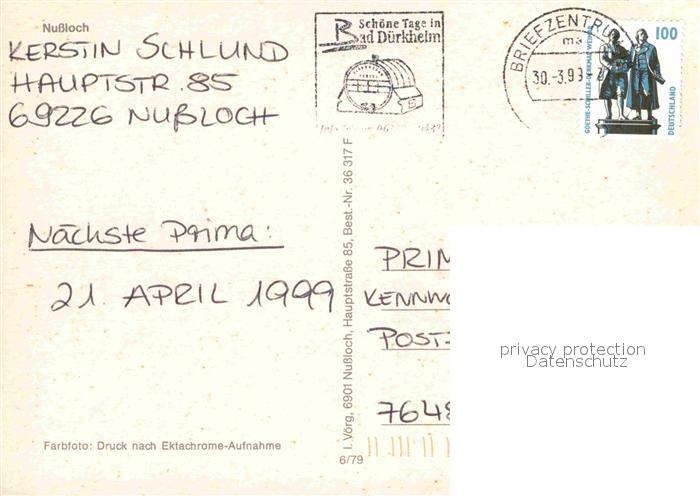 Nußloch
KERSTIN SCHLUND
HAUPTSTR. 85
69226 NUßLOCH
Schöne Tage in
Bad Dürkheim
BRIEFZENTRU
ma
30.-3.99-2
100
GOETHE-SCHILLER-DENKMAL WEIMAR
DEUTSCHLAND
NÄCHSTE PRIMA:
21. APRIL 1999
I. Vörg, 6901 Nußloch, Hauptstraße 85, Best.-Nr. 36 317 F
PRIM
KENNWO
POST
7648
privacy protection
Datenschutz
Farbfoto: Druck nach Ektachrome-Aufnahme
6/79